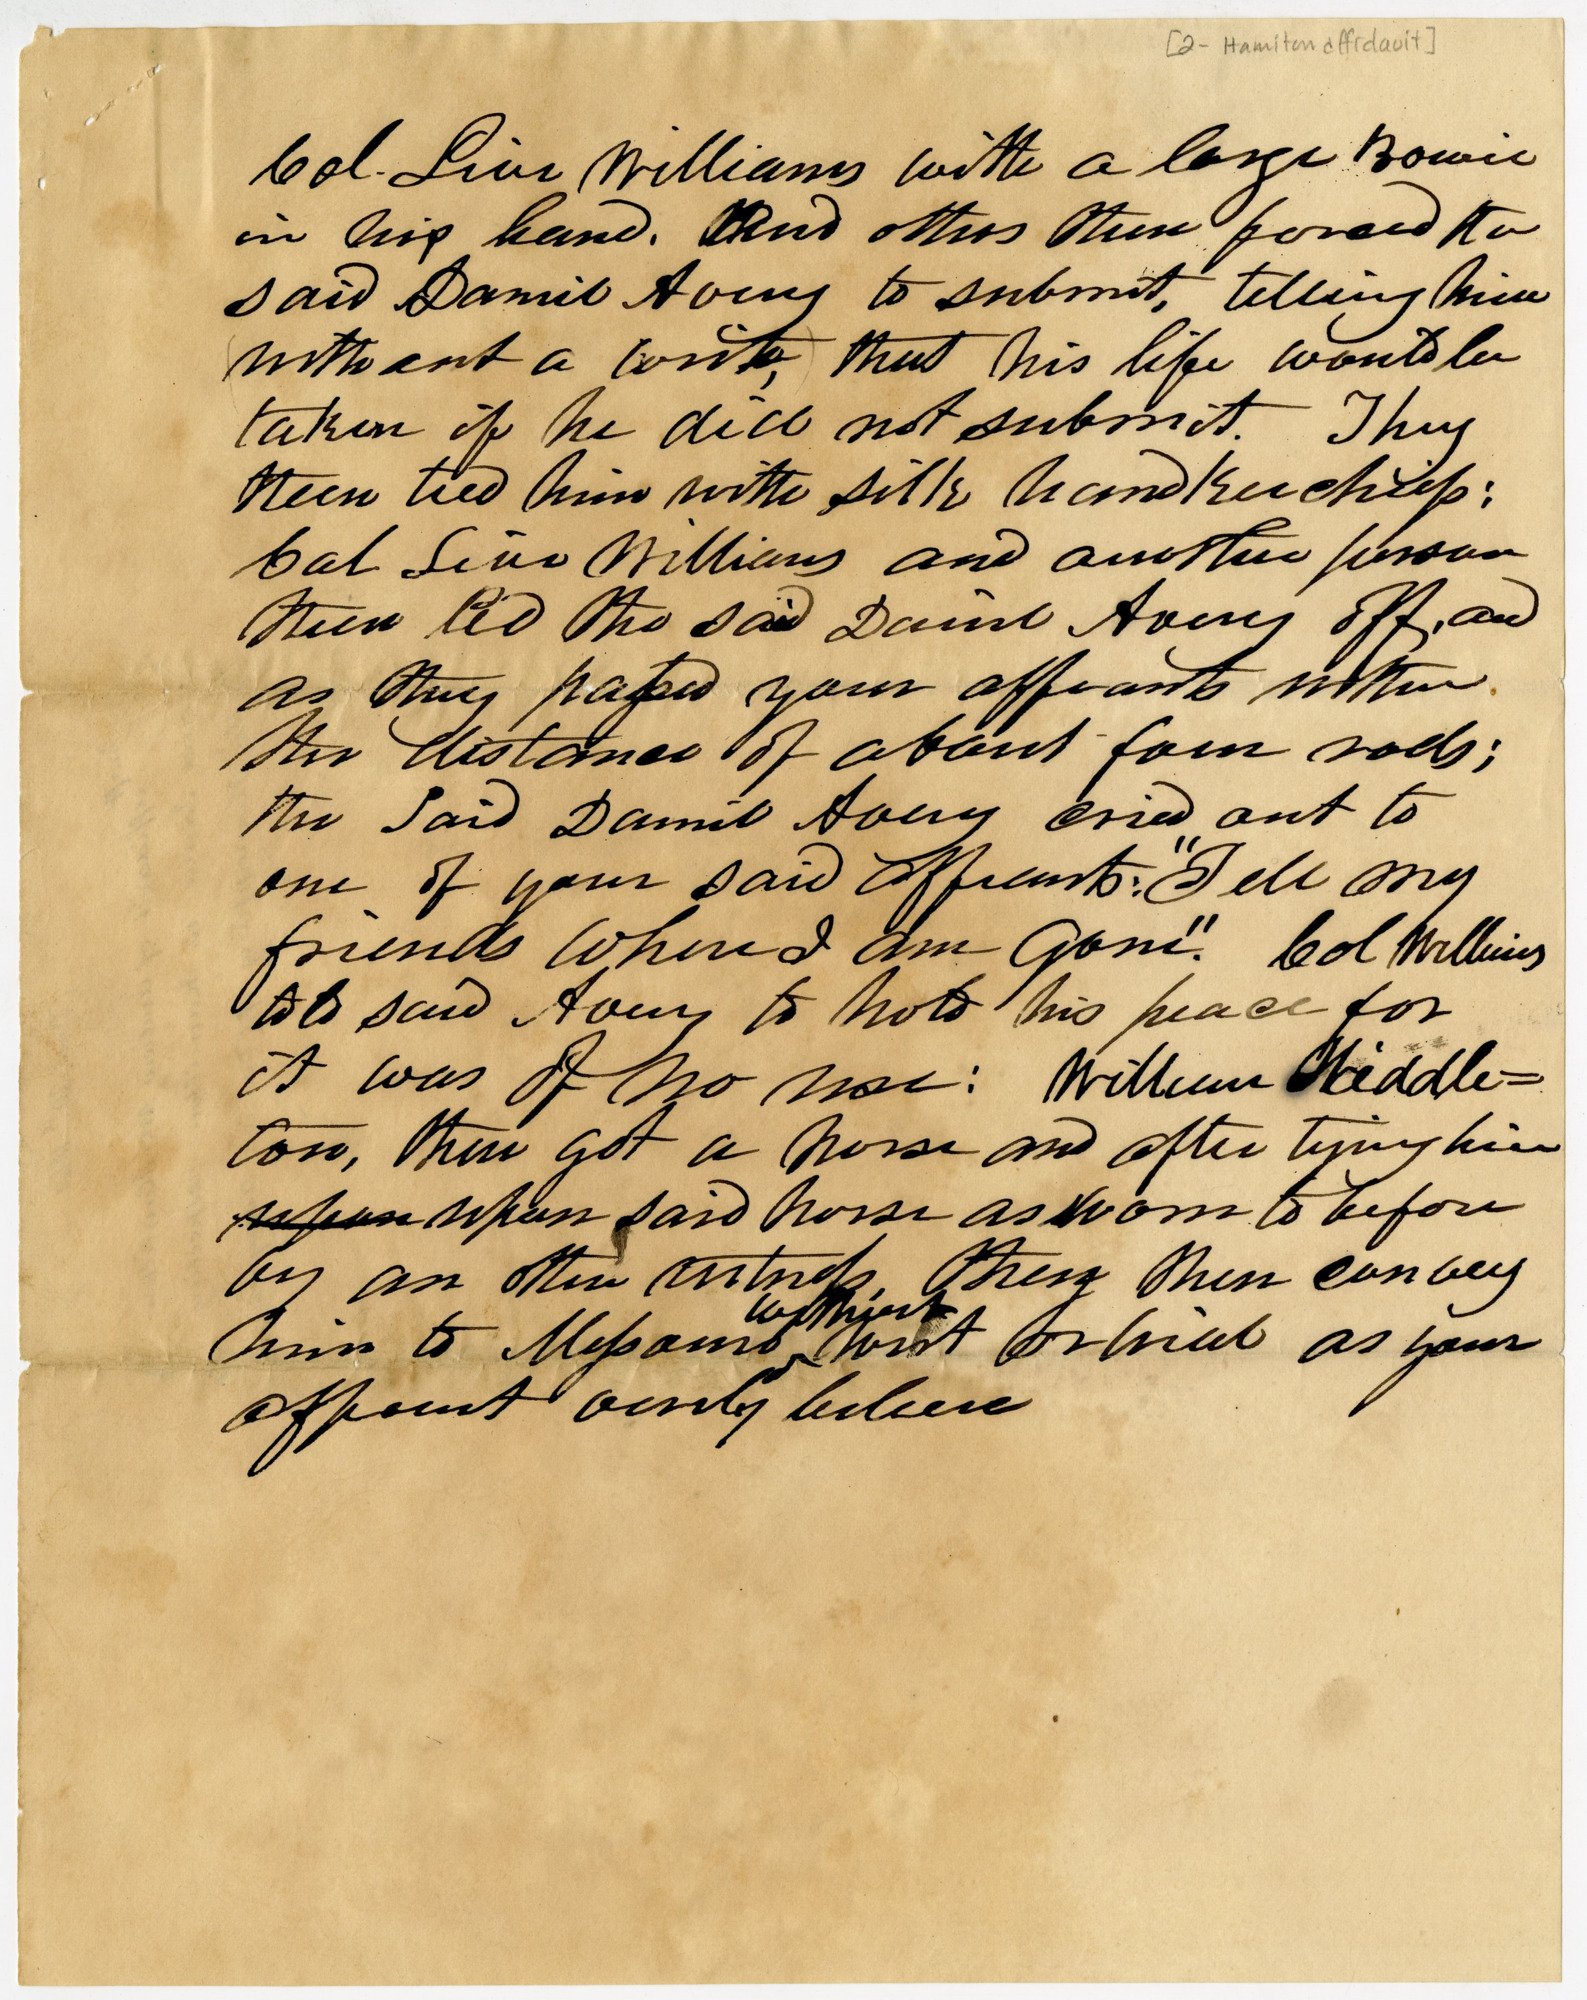 [2- Hamilton affidavit]
Col. Levi Williams with a large Bowie
in his hand. And others then forced the
said Daniel Avery to submit, telling him
(without a writ,) that his life would be
taken if he did not submit. They
then tied him with silk handkerchiefs:
Col Levi Williams and another person
then led the said Daniel Avery off, and
as they passed your affiants within
the distance of about four rods;
the said Daniel Avery cried out to
one of your said affiants: "Tell my
friends where I am gone". Col Williams
told said Avery to hold his peace for
it was of no use: William Middle=
ton, then got a horse and after tying him
upon upon said horse as sworn to before
by an other witness, they then convey
him to Missouri without writ or trial as your
affiant verily believe